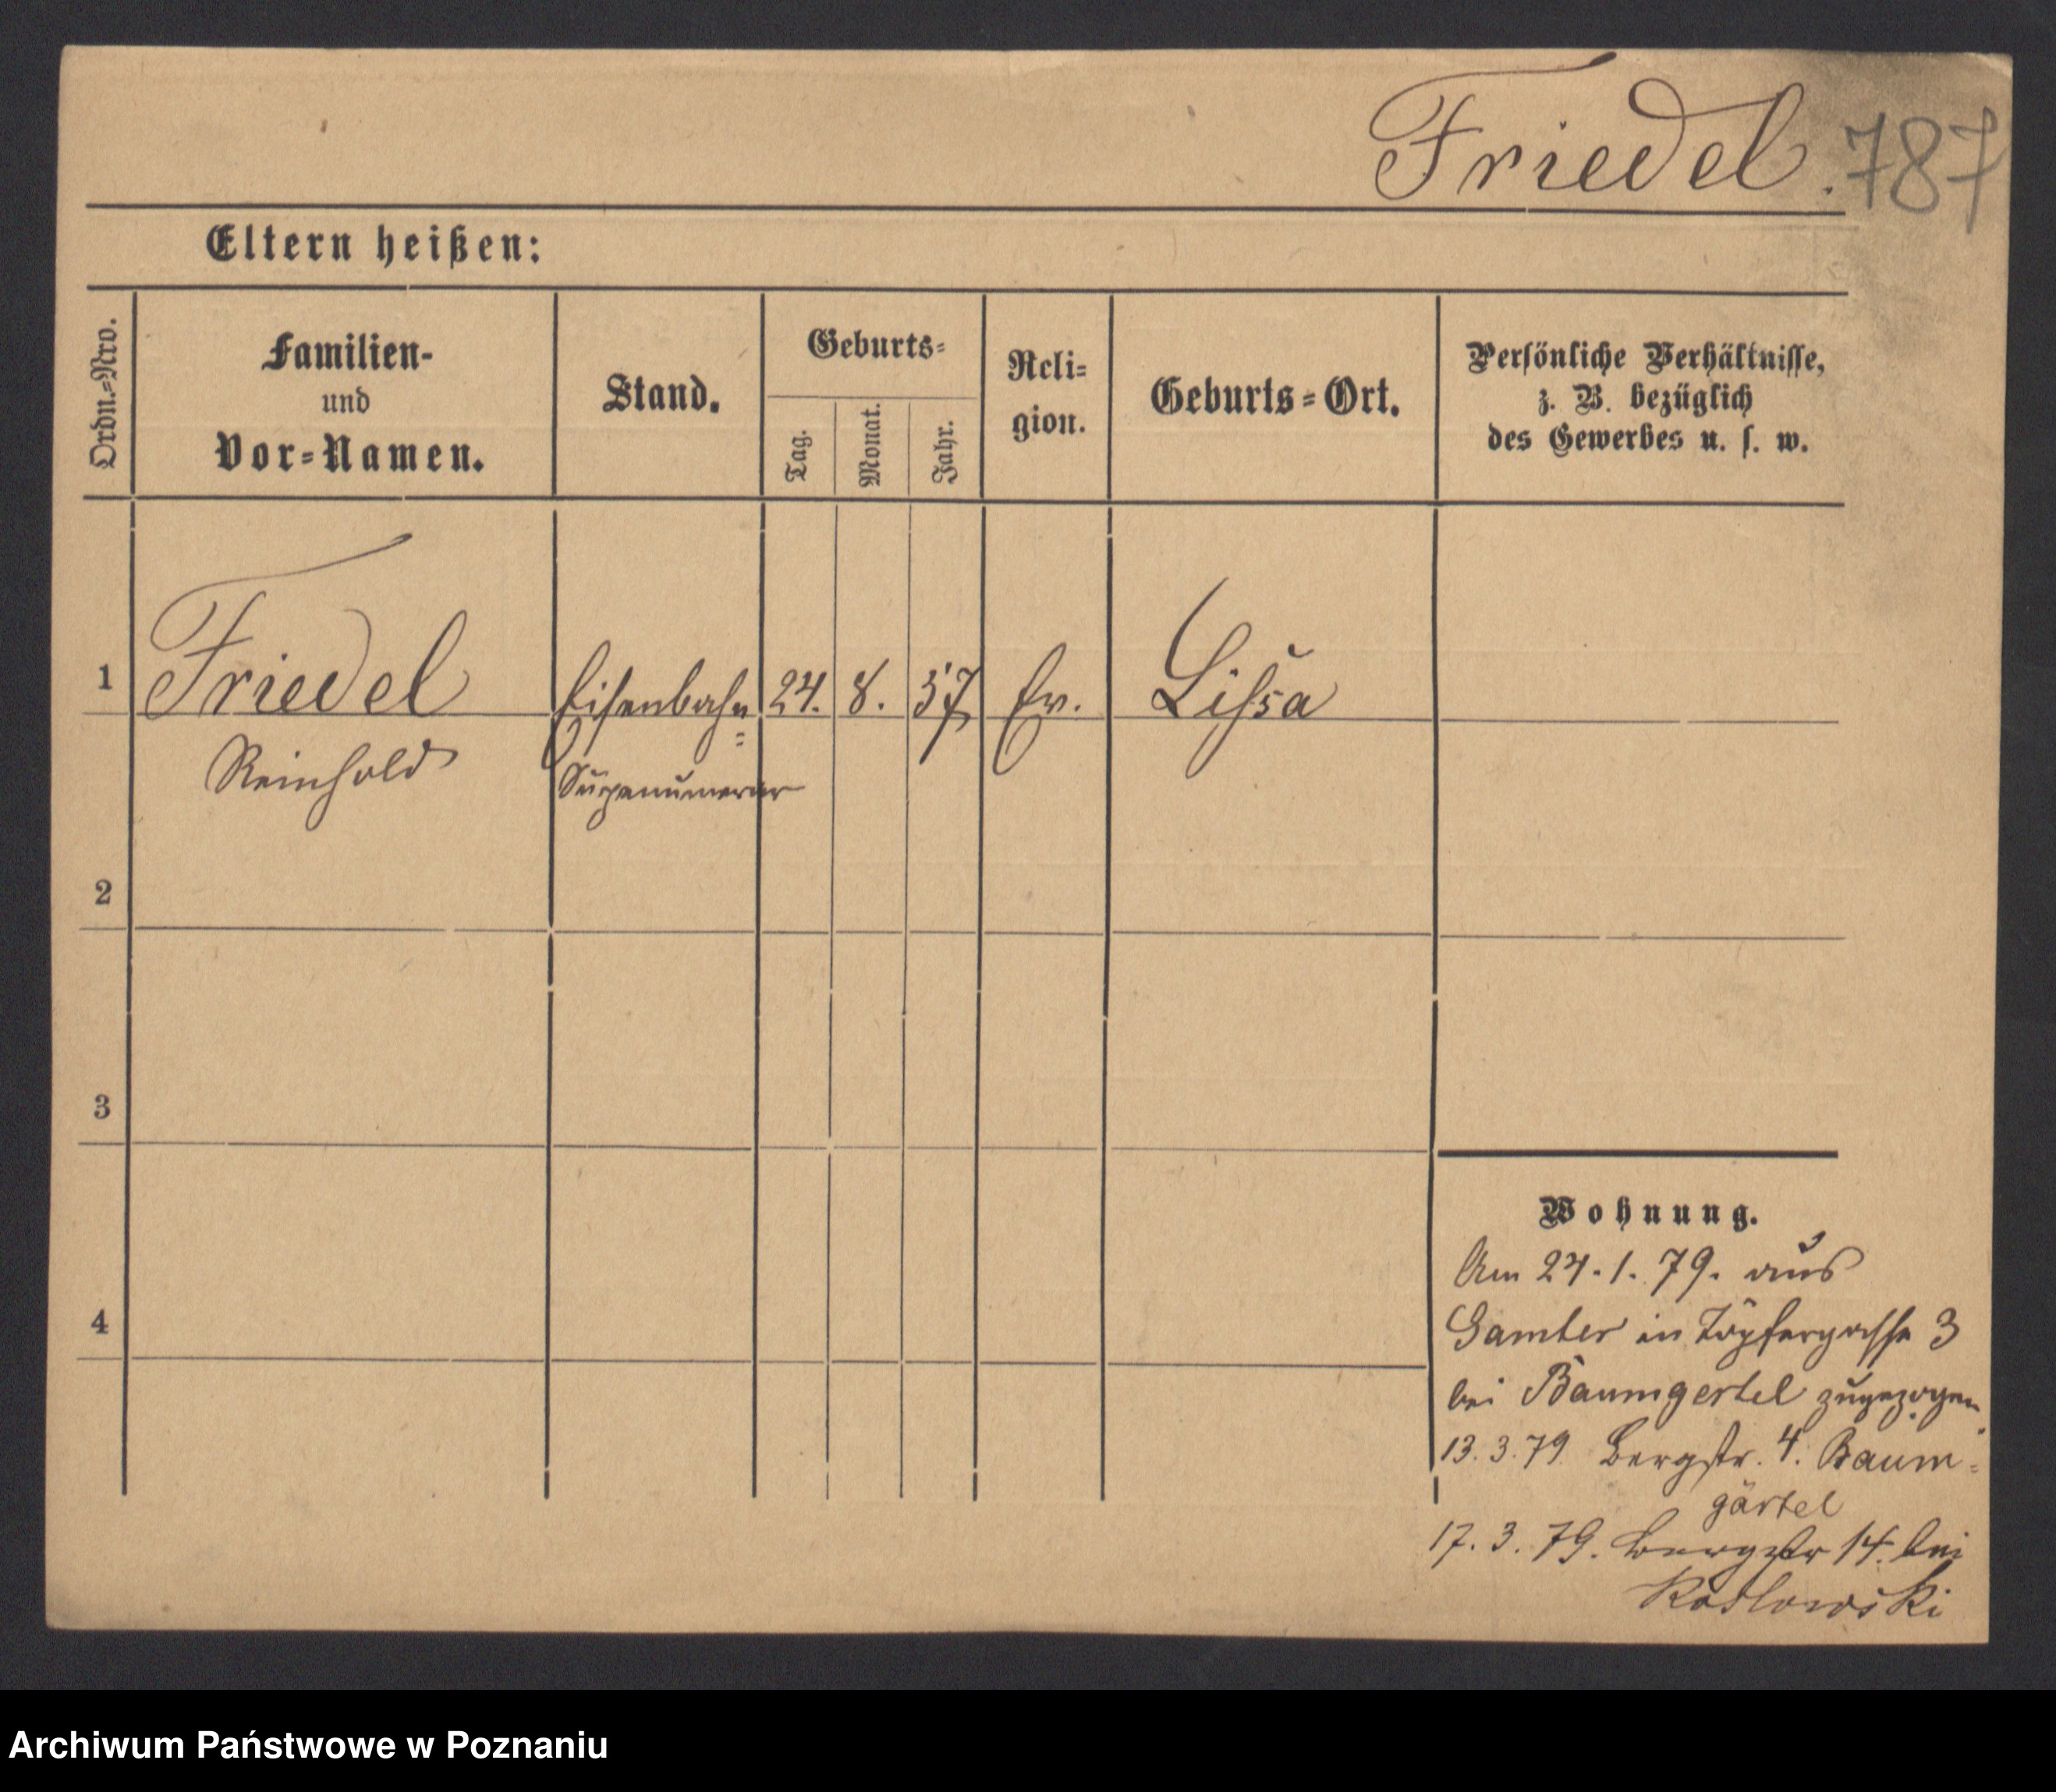 Friedel. 787
Eltern heißen:
Ordn.-Nro.
Familien-
und
Vor-Namen.
Stand.
Geburts-
Tag.
Monat.
Jahr.
Reli-
gion.
Geburts-Ort.
Persönliche Verhältnisse,
z. B. bezüglich
des Gewerbes u. s. w.
1 Friedel Eisenbahn= 24. 8. 57 Ev. Lissa
Reinhold Supernumerar
2
3
4
Wohnung.
Am 24.1.79. aus
Samter in Töpfergasse 3
bei Baumgertel zugezogen
13.3.79 Bergstr. 4. Baum=
gärtel
17.3.79. Bergstr 14. bei
Koslowski
Archiwum Państwowe w Poznaniu